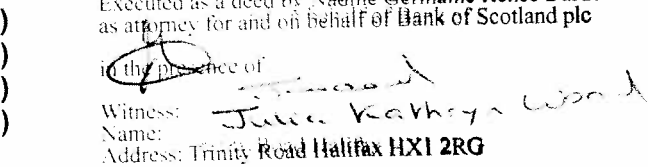 Executed as a deed by Nadine Germaine Renee
as attorney for and on behalf of Bank of Scotland plc
in the presence of
Witness:
Name: Julie Kathryn Wood
Address: Trinity Road Halifax HX1 2RG